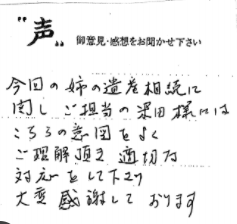 "声" 御意見・感想をお聞かせ下さい
今回の姉の遺産相続に
関し ご担当の 様には
こちらの意図をよく
ご理解頂き 適切な
対応をして下さり
大変 感謝して おります